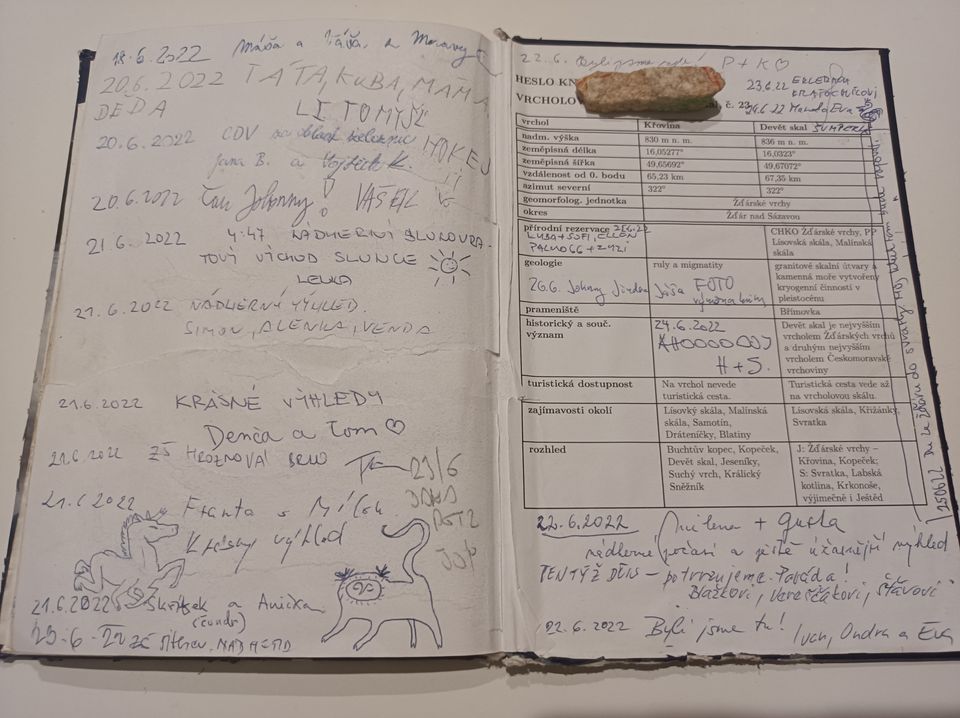 18.6.2022 Máša a Táňa, z Moravy
20.6.2022 TÁTA, KUBA, MÁMA
DĚDA LITOMYŠL
20.6.2022 CDV
HOKEJ
Jana B. a Vojtěch K.
20.6.2022 Čau Johnny! VAŠEK
21.6.2022 4:47 NÁDHERNÝ SLUNOVRA-
TOVÝ VÝCHOD SLUNCE
LENKA
21.6.2022 NÁDHERNÝ VÝHLED.
SIMON, ALENKA, VENDA
21.6.2022 KRÁSNÉ VÝHLEDY
Denča a Tom ♡
21.6.2022 ZŠ HROZNOVÁ BRNO
23/6
21.6.2022 Franta s
Krásný výhled
21.6.2022 a Anička
(čundr)
23.6.22 ZŠ
22.6. Byli jsme tu! P + K ♡
HESLO
VRCHOLO
č. 23
23.6.22
KRATOCHVÍLOVI
24.6.22 Manda Eva
vrchol Křovina Devět skal
nadm. výška 830 m n. m. 836 m n. m.
zeměpisná délka 16,05277° 16,0323°
zeměpisná šířka 49,65692° 49,67072°
vzdálenost od 0. bodu 65,23 km 67,35 km
azimut severní 322° 322°
geomorfolog. jednotka Žďárské vrchy
okres Žďár nad Sázavou
přírodní rezervace CHKO Žďárské vrchy, PP
Lisovská skála, Malínská
skála
geologie ruly a migmatity granitové skalní útvary a
kamenná moře vytvořeny
kryogenní činností v
pleistocénu
26.6. Johnny Jindra Jůša FOTO
výměna knihy
prameniště Břímovka
historický a souč.
význam
24.6.2022
AHOOOOOJ
H+S.
Devět skal je nejvyšším
vrcholem Žďárských vrchů
a druhým nejvyšším
vrcholem Českomoravské
vrchoviny
turistická dostupnost Na vrchol nevede
turistická cesta.
Turistická cesta vede až
na vrcholovou skálu.
zajímavosti okolí Lisovský skála, Malínská
skála, Samotín,
Dráteničky, Blatiny
Lisovská skála, Křižánky,
Svratka
rozhled Buchtův kopec, Kopeček,
Devět skal, Jeseníky,
Suchý vrch, Králický
Sněžník
J: Žďárské vrchy –
Křovina, Kopeček;
S: Svratka, Labská
kotlina, Krkonoše,
výjimečně i Ještěd
250622 do svratky
22.6.2022 Milena + Gusta
nádherné počasí a ještě úžasnější výhled
TENTÝŽ DEN – potvrzujeme. Paráda!
Blažkovi, Šťávovi
22.6.2022 Byli jsme tu! Ondra a Eva